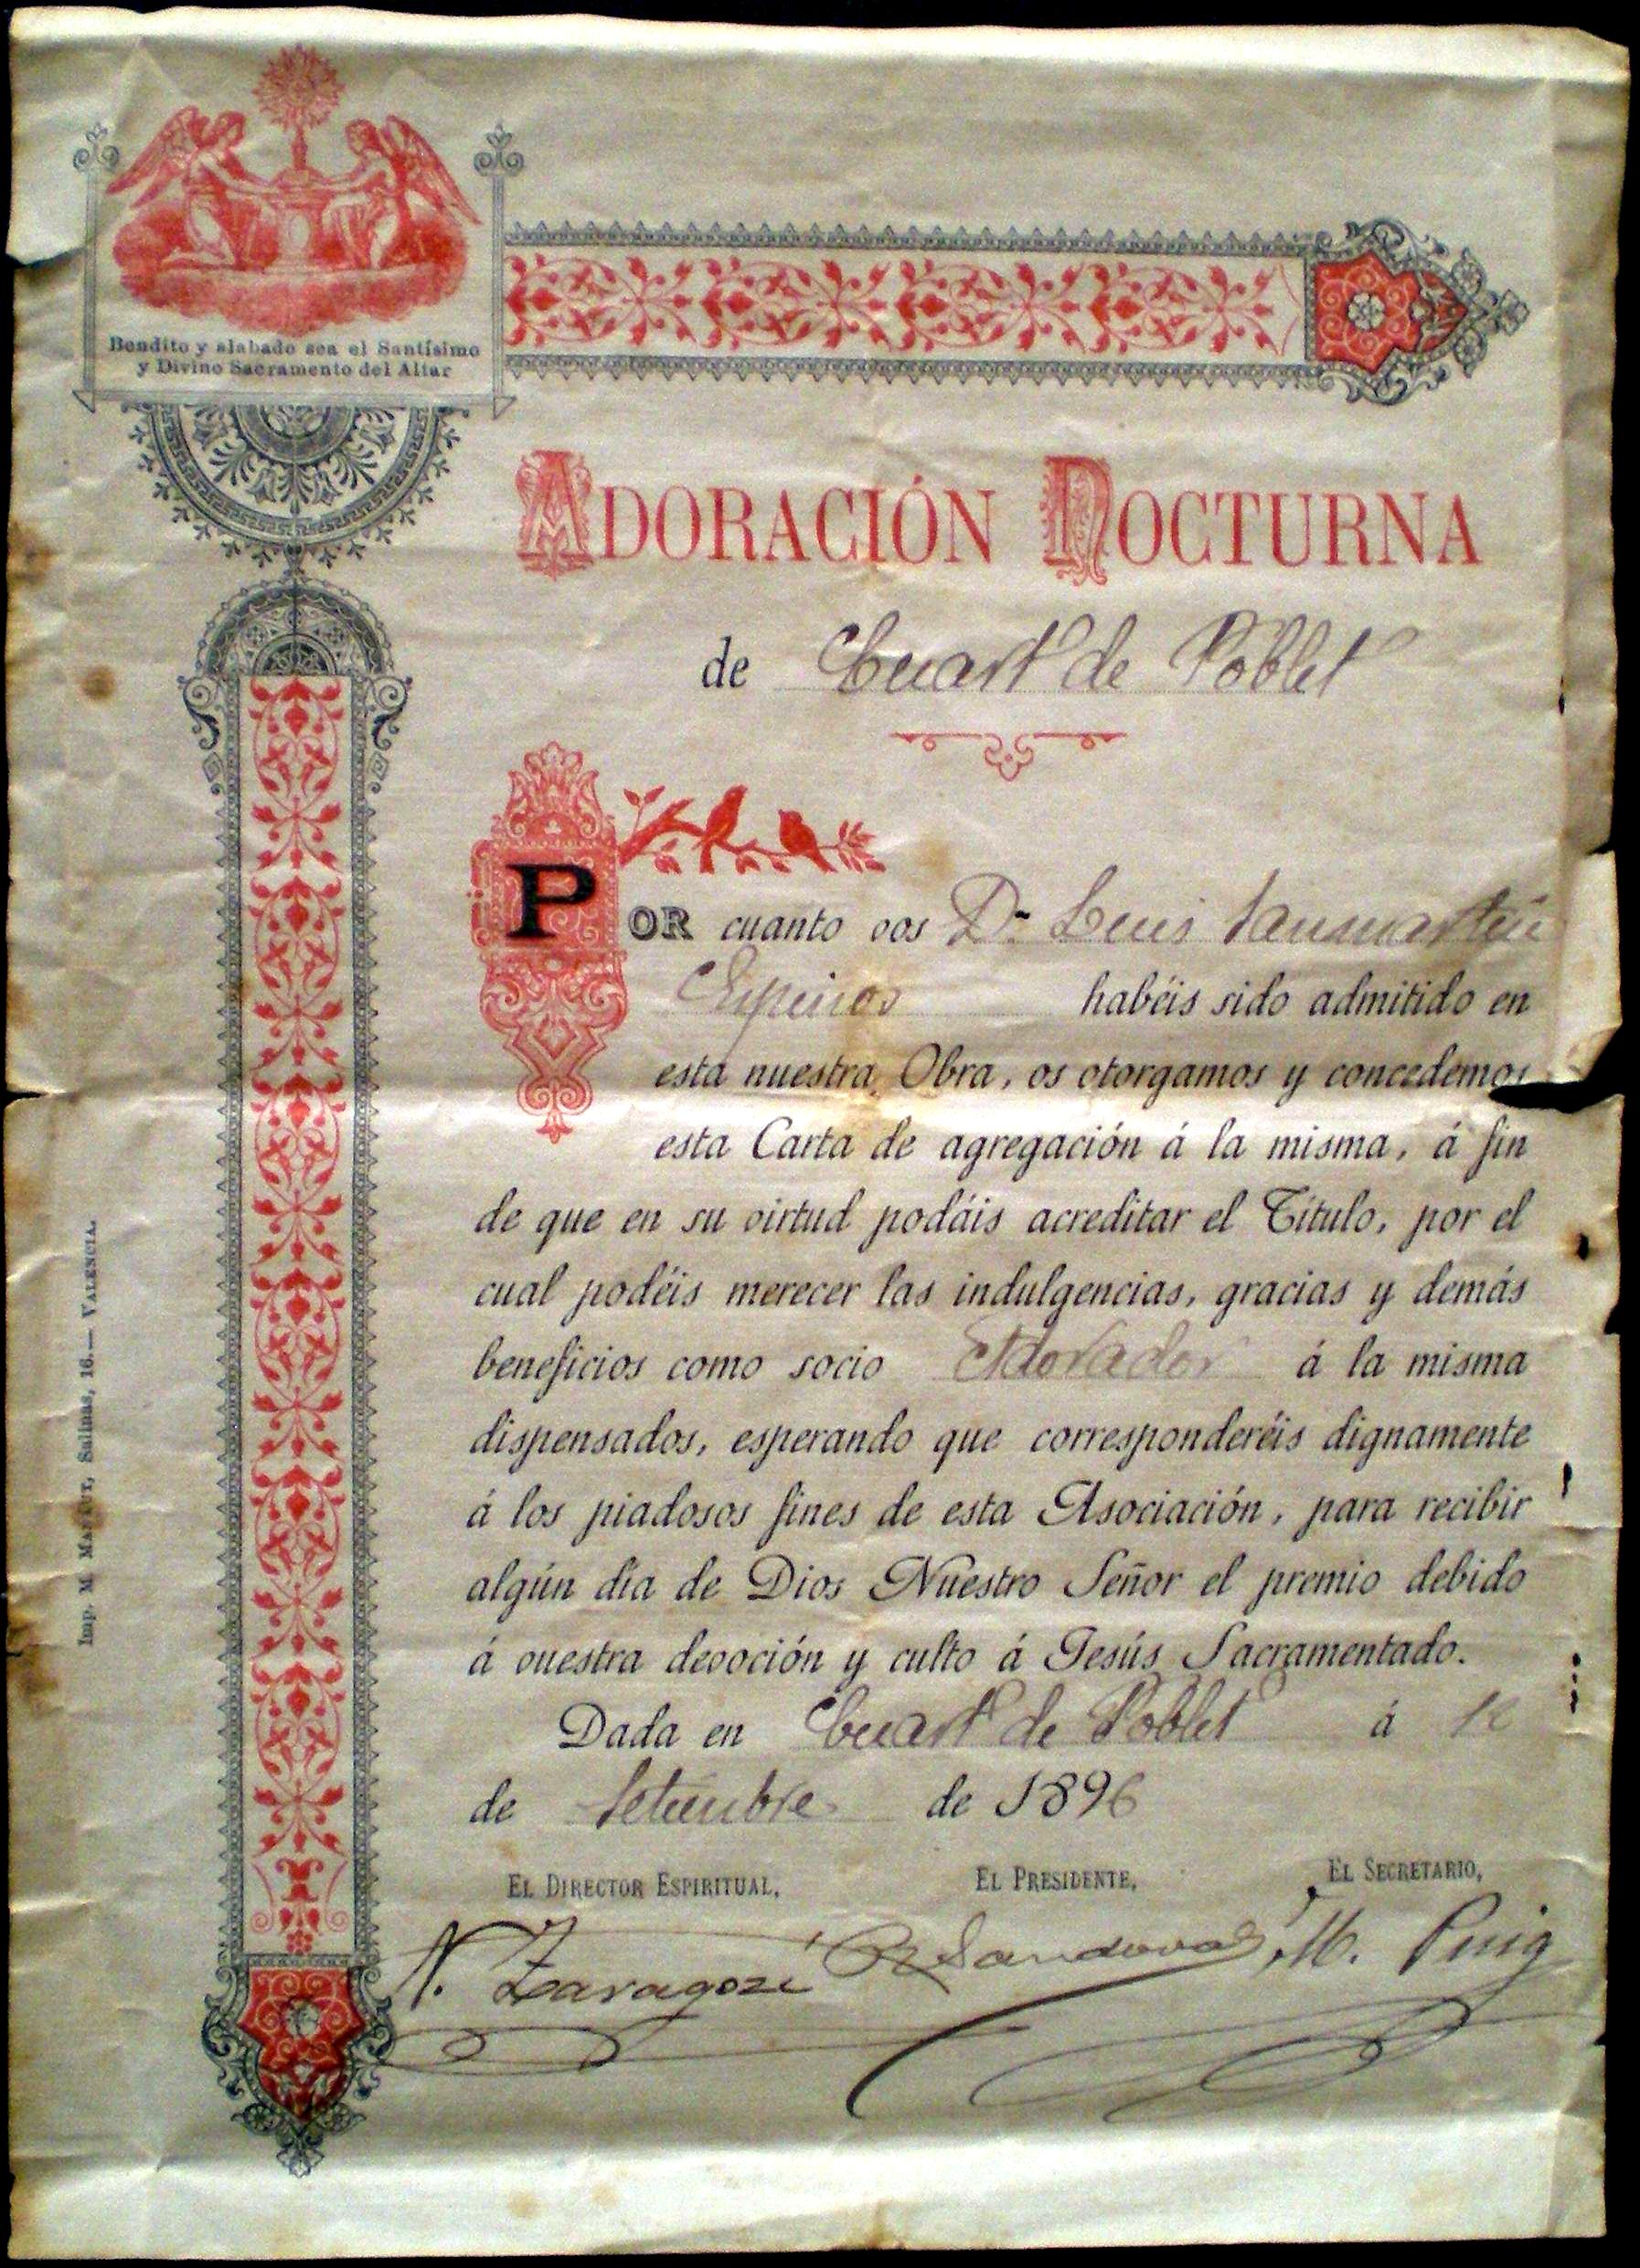 Bendito y alabado sea el Santísimo
y Divino Sacramento del Altar
ADORACIÓN NOCTURNA
de Cuart de Poblet
POR cuanto vos Dn Luis Sanmartín
Espinos habéis sido admitido en
esta nuestra Obra, os otorgamos y concedemos
esta Carta de agregación á la misma, á fin
de que en su virtud podáis acreditar el Título, por el
cual podéis merecer las indulgencias, gracias y demás
beneficios como socio Adorador á la misma
dispensados, esperando que corresponderéis dignamente
á los piadosos fines de esta Asociación, para recibir
algún día de Dios Nuestro Señor el premio debido
á vuestra devoción y culto á Jesús Sacramentado.
Dada en Cuart de Poblet á
de Setiembre de 1896
EL DIRECTOR ESPIRITUAL, EL PRESIDENTE, EL SECRETARIO,
N. Zaragozá R Sandoval M. Puig
Imp. M. Salinas, 16.—VALENCIA.